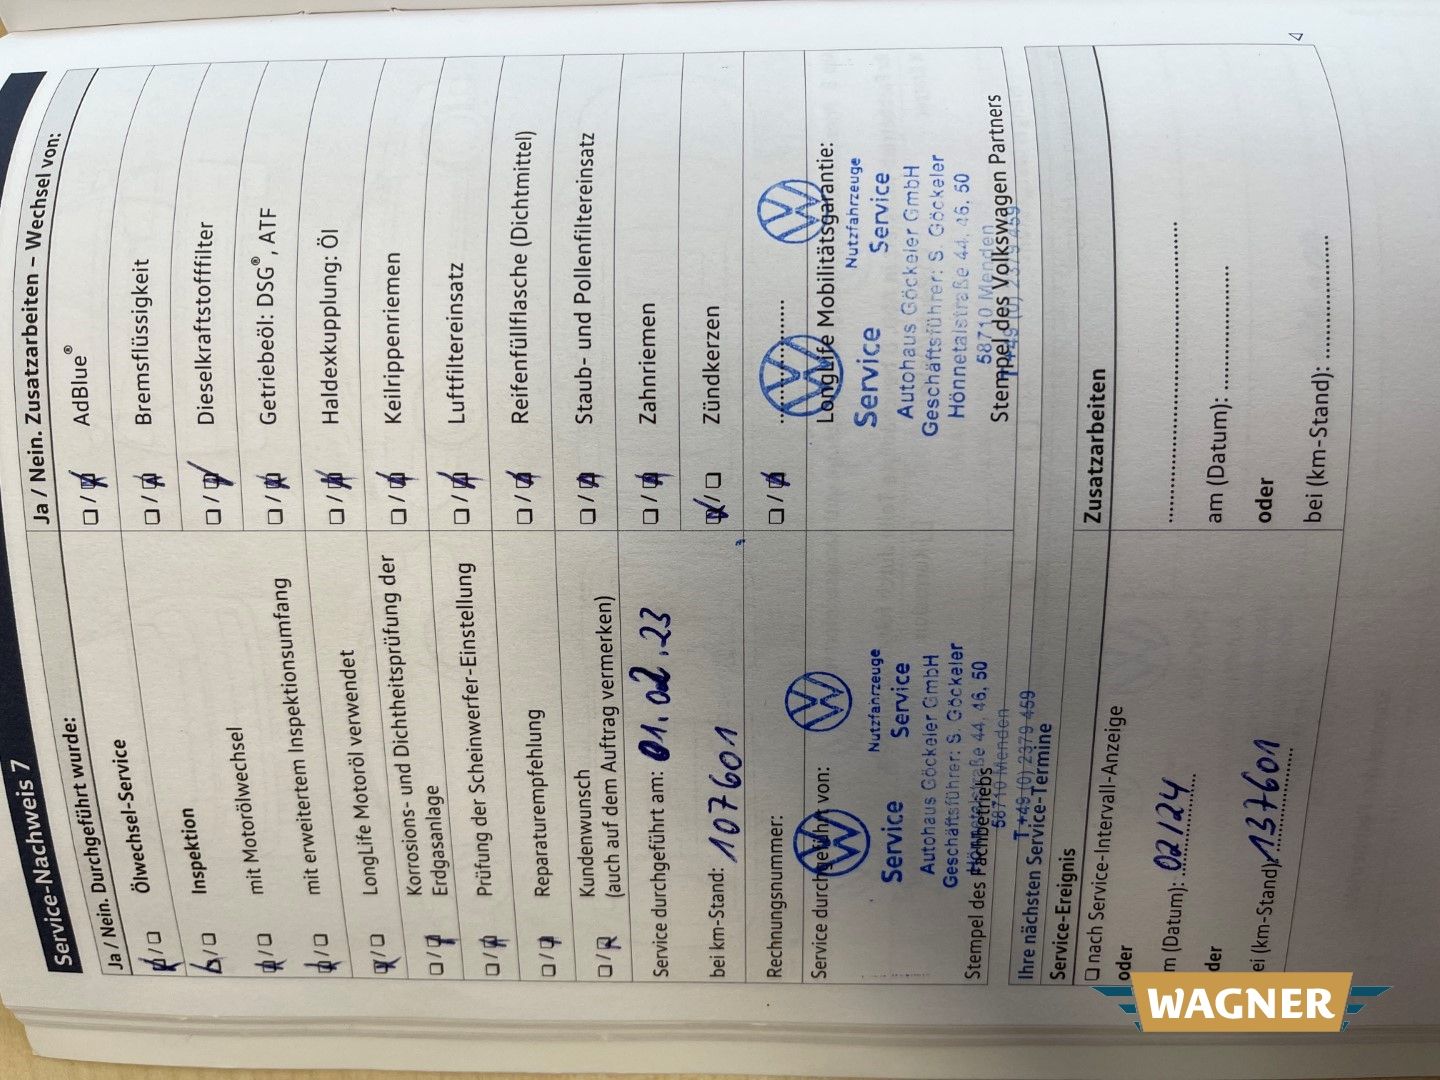 Service-Nachweis 7
Ja / Nein. Durchgeführt wurde:
Ja / Nein
Ölwechsel-Service
Inspektion
mit Motorölwechsel
mit erweitertem Inspektionsumfang
LongLife Motoröl verwendet
Korrosions- und Dichtheitsprüfung der
Erdgasanlage
Prüfung der Scheinwerfer-Einstellung
Reparaturempfehlung
Kundenwunsch
(auch auf dem Auftrag vermerken)
Service durchgeführt am: 01.02.23
bei km-Stand: 107601
Rechnungsnummer:
Service durchgeführt von:
Nutzfahrzeuge
Service Service
Autohaus Göckeler GmbH
Geschäftsführer: S. Göckeler
Hönnetalstraße 44, 46, 50
58710 Menden
T +49 (0) 2379 459
Stempel des Fachbetriebs
Ja / Nein. Zusatzarbeiten – Wechsel von:
AdBlue®
Bremsflüssigkeit
Dieselkraftstofffilter
Getriebeöl: DSG®, ATF
Haldexkupplung: Öl
Keilrippenriemen
Luftfiltereinsatz
Reifenfüllflasche (Dichtmittel)
Staub- und Pollenfiltereinsatz
Zahnriemen
Zündkerzen
LongLife Mobilitätsgarantie:
Nutzfahrzeuge
Service Service
Autohaus Göckeler GmbH
Geschäftsführer: S. Göckeler
Hönnetalstraße 44, 46, 50
58710 Menden
T +49 (0) 2379 459
Stempel des Volkswagen Partners
Ihre nächsten Service-Termine
Service-Ereignis
nach Service-Intervall-Anzeige
oder
m (Datum): 02/24
der
ei (km-Stand): 137601
Zusatzarbeiten
am (Datum):
oder
bei (km-Stand):
WAGNER